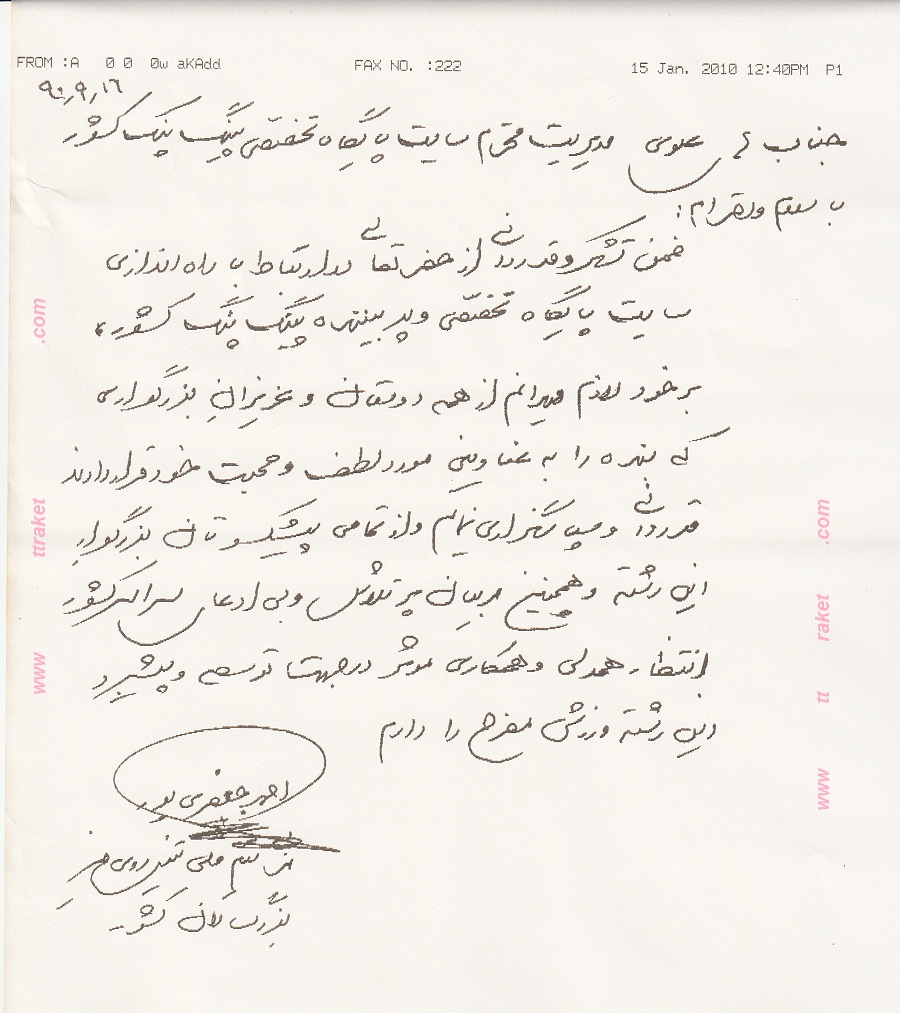 FROM :A 0 0 0w aKAdd FAX NO. :222 15 Jan. 2010 12:40PM P1
۹۰٫۹٫۱۶
جناب علوی مدیریت محترم سایت پایگاه تخصصی پینگ پنگ کشور
با سلام و احترام:
ضمن تشکر و قدردانی از حضرتعالی در ارتباط با راه اندازی
سایت پایگاه تخصصی و پر بیننده پینگ پنگ کشور،
بر خود لازم میدانم از همه دوستان و عزیزان بزرگواری
که بنده را به عناوینی مورد لطف و محبت خود قرار دادند
قدردانی و سپاسگزاری نمایم و از تمامی پیشکسوتان بزرگوار
این رشته و همچنین مربیان پر تلاش و بی ادعای سراسر کشور
انتظار همدلی و همکاری موثر در جهت توسعه و پیشبرد
این رشته ورزشی مفرح را دارم
احمد جعفری پور
تیم ملی تنیس روی میز
بزرگسالان کشور
www ttraket .com
www tt raket .com